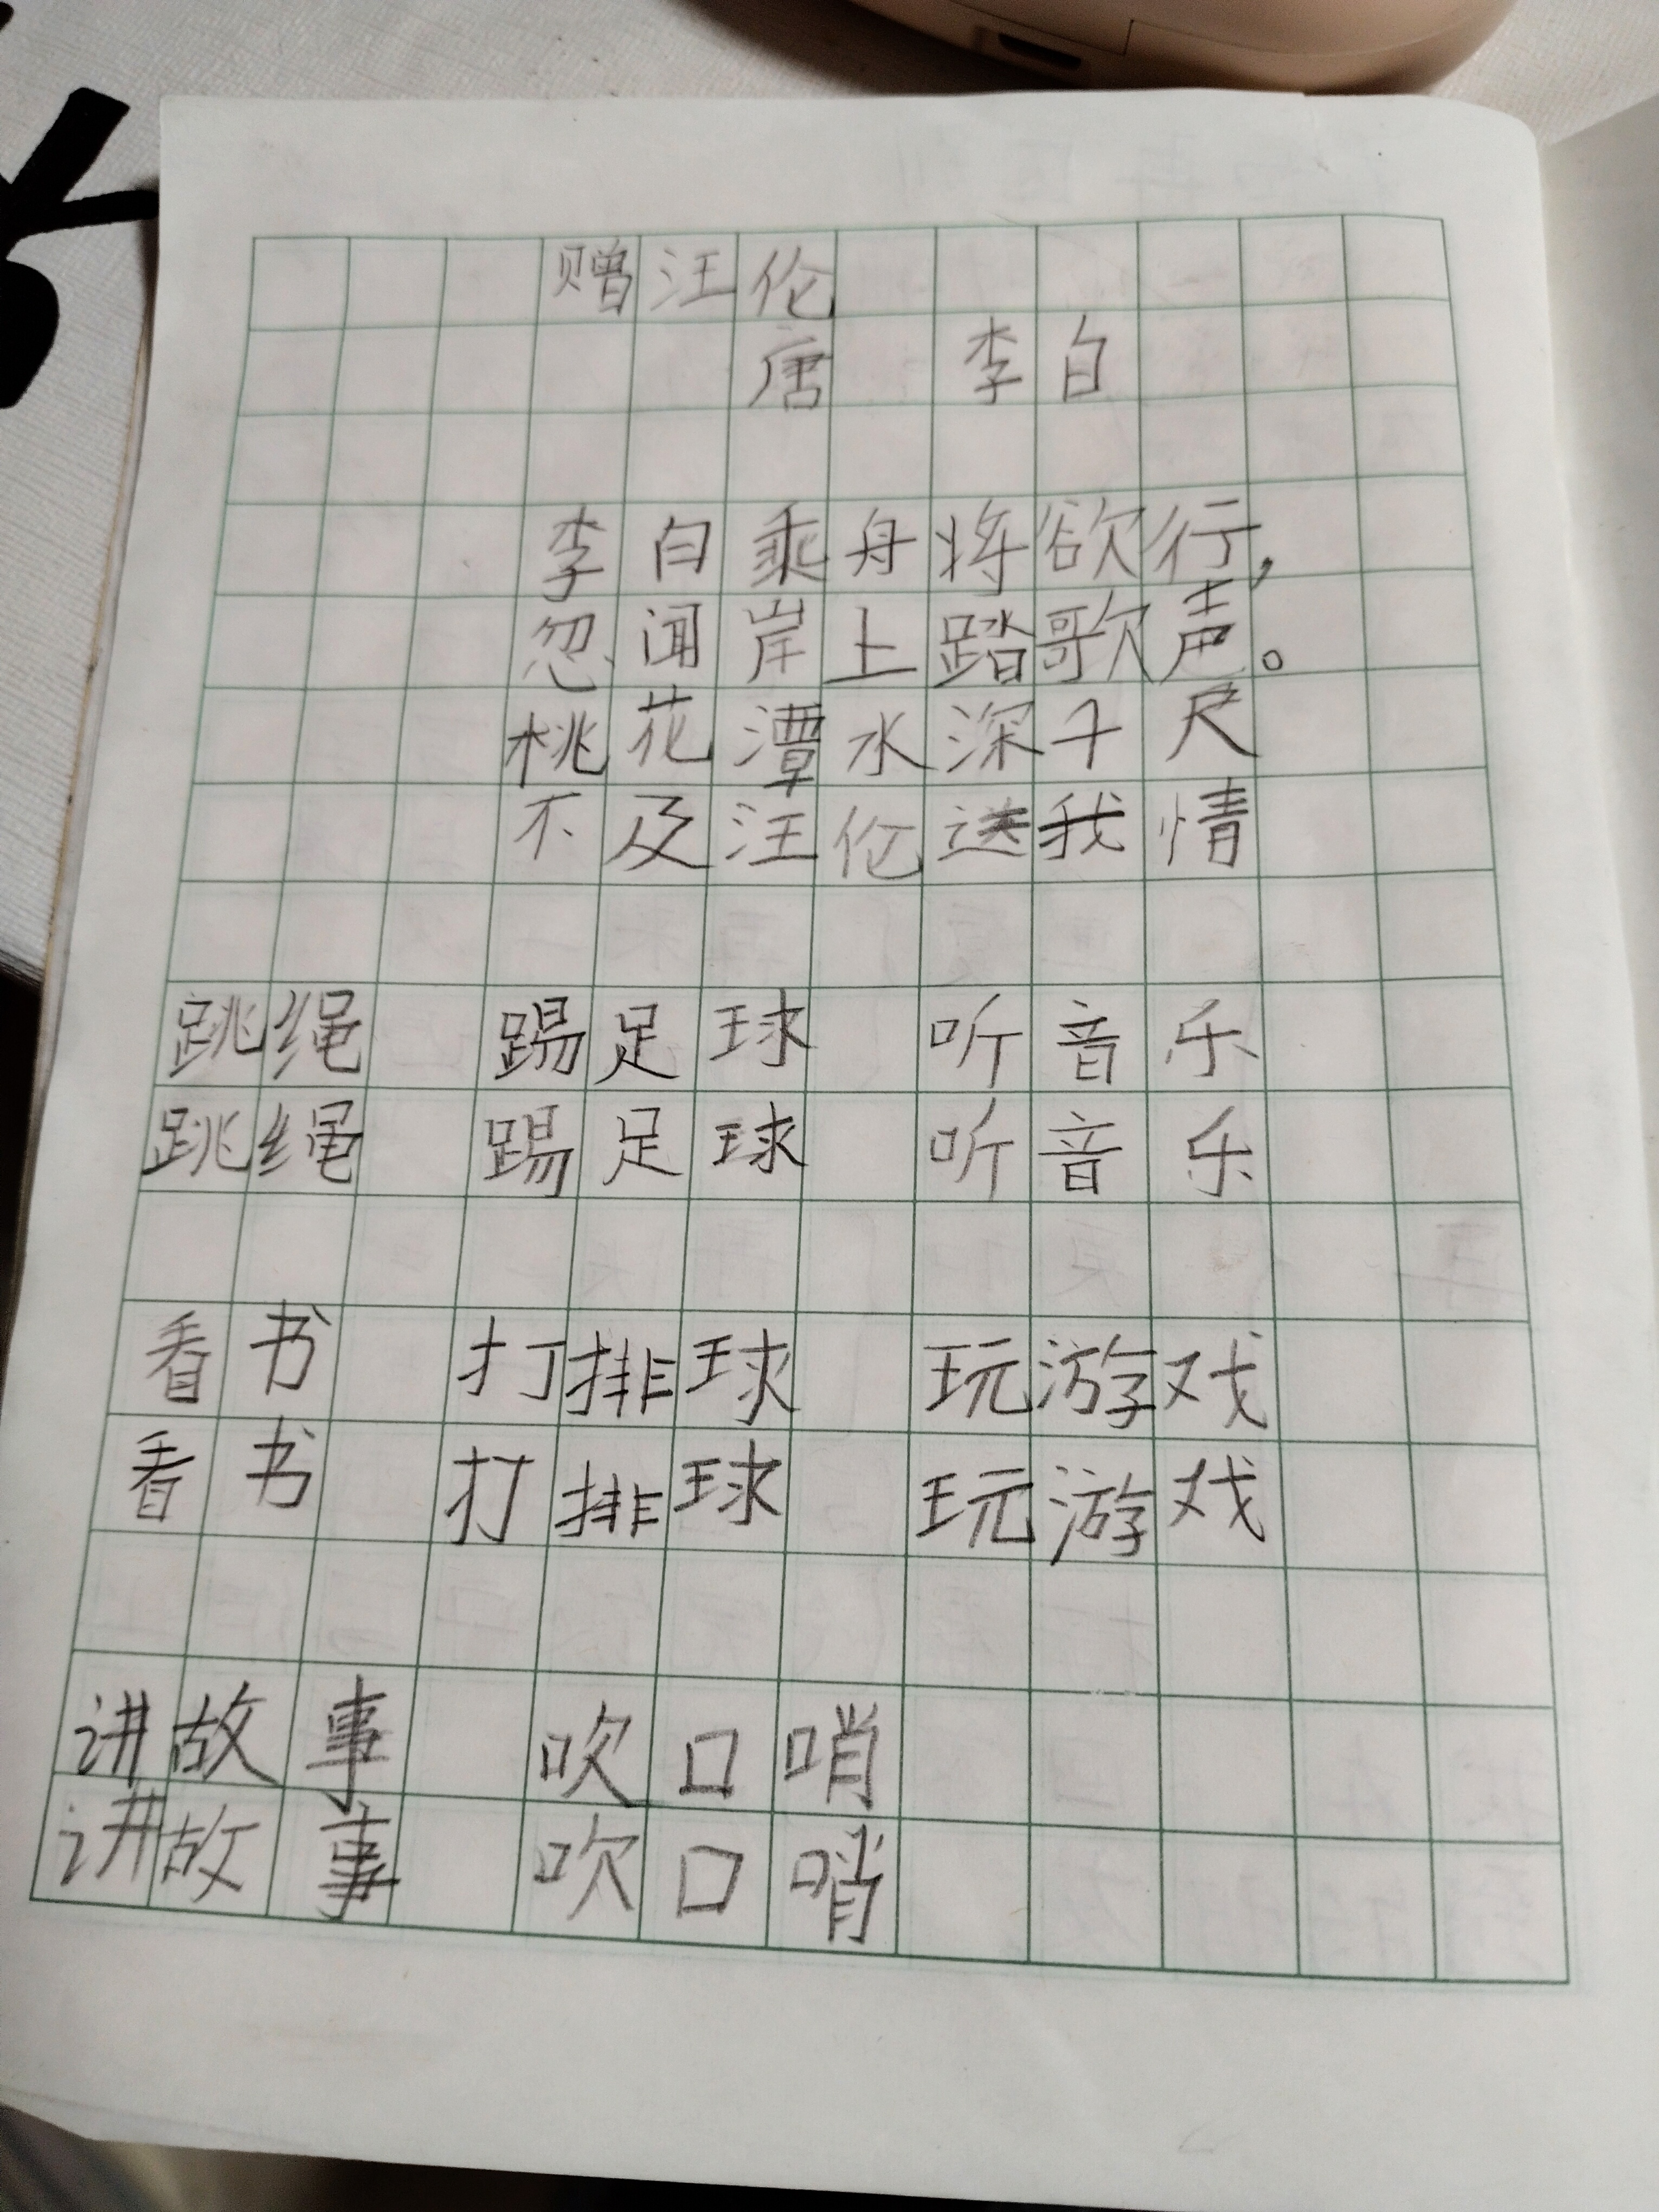 赠汪伦
唐 李白
李白乘舟将欲行,
忽闻岸上踏歌声。
桃花潭水深千尺
不及汪伦送我情
跳绳 踢足球 听音乐
跳绳 踢足球 听音乐
看书 打排球 玩游戏
看书 打排球 玩游戏
讲故事 吹口哨
讲故事 吹口哨